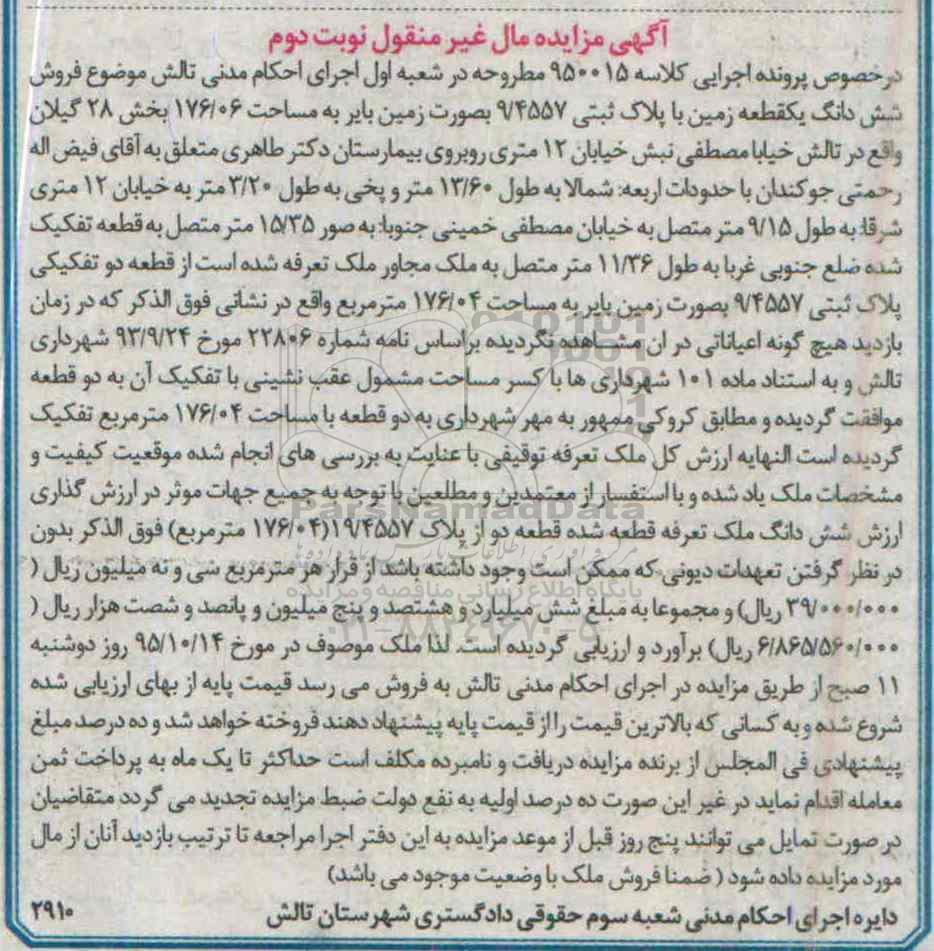 آگهی مزایده مال غیر منقول نوبت دوم
درخصوص پرونده اجرایی کلاسه ۹۵۰۰۱۵ مطروحه در شعبه اول اجرای احکام مدنی تالش موضوع فروش
شش دانگ یکقطعه زمین با پلاک ثبتی ۹/۴۵۵۷ بصورت زمین بایر به مساحت ۱۷۶/۰۶ بخش ۲۸ گیلان
واقع در تالش خیابا مصطفی نبش خیابان ۱۲ متری روبروی بیمارستان دکتر طاهری متعلق به آقای فیض اله
رحمتی جوکندان با حدودات اربعه: شمالا به طول ۱۳/۶۰ متر و پخی به طول ۳/۲۰ متر به خیابان ۱۲ متری
شرقا: به طول ۹/۱۵ متر متصل به خیابان مصطفی خمینی جنوبا: به صور ۱۵/۳۵ متر متصل به قطعه تفکیک
شده ضلع جنوبی غربا به طول ۱۱/۳۶ متر متصل به ملک مجاور ملک تعرفه شده است از قطعه دو تفکیکی
پلاک ثبتی ۹/۴۵۵۷ بصورت زمین بایر به مساحت ۱۷۶/۰۴ مترمربع واقع در نشانی فوق الذکر که در زمان
بازدید هیچ گونه اعیاناتی در ان مشاهده نگردیده براساس نامه شماره ۲۲۸۰۶ مورخ ۹۳/۹/۲۴ شهرداری
تالش و به استناد ماده ۱۰۱ شهرداری ها با کسر مساحت مشمول عقب نشینی با تفکیک آن به دو قطعه
موافقت گردیده و مطابق کروکی ممهور به مهر شهرداری به دو قطعه با مساحت ۱۷۶/۰۴ مترمربع تفکیک
گردیده است النهایه ارزش کل ملک تعرفه توقیفی با عنایت به بررسی های انجام شده موقعیت کیفیت و
مشخصات ملک یاد شده و با استفسار از معتمدین و مطلعین با توجه به جمیع جهات موثر در ارزش گذاری
ParsNamadData
ارزش شش دانگ ملک تعرفه قطعه شده قطعه دو از پلاک ۱۹/۴۵۵۷(۱۷۶/۰۴ مترمربع) فوق الذکر بدون
در نظر گرفتن تعهدات دیونی که ممکن است وجود داشته باشد از قرار هر مترمربع سی و نه میلیون ریال (
پایگاه اطلاع رسانی مناقصه و مزایده
۳۹/۰۰۰/۰۰۰ ریال) و مجموعا به مبلغ شش میلیارد و هشتصد و پنج میلیون و پانصد و شصت هزار ریال (
۰۲۱-۸۸۳۴۹۶۷۰-۵
۶/۸۶۵/۵۶۰/۰۰۰ ریال) برآورد و ارزیابی گردیده است. لذا ملک موصوف در مورخ ۹۵/۱۰/۱۴ روز دوشنبه
۱۱ صبح از طریق مزایده در اجرای احکام مدنی تالش به فروش می رسد قیمت پایه از بهای ارزیابی شده
شروع شده و به کسانی که بالاترین قیمت را از قیمت پایه پیشنهاد دهند فروخته خواهد شد و ده درصد مبلغ
پیشنهادی فی المجلس از برنده مزایده دریافت و نامبرده مکلف است حداکثر تا یک ماه به پرداخت ثمن
معامله اقدام نماید در غیر این صورت ده درصد اولیه به نفع دولت ضبط مزایده تجدید می گردد متقاضیان
در صورت تمایل می توانند پنج روز قبل از موعد مزایده به این دفتر اجرا مراجعه تا ترتیب بازدید آنان از مال
مورد مزایده داده شود ( ضمنا فروش ملک با وضعیت موجود می باشد)
دایره اجرای احکام مدنی شعبه سوم حقوقی دادگستری شهرستان تالش ۲۹۱۰